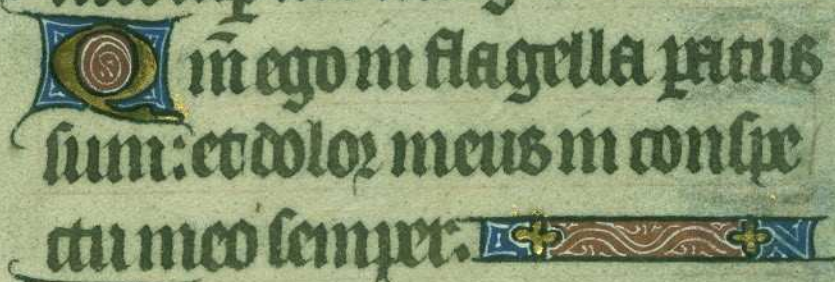 Qm̄ ego in flagella paratus
sum: et dolor meus in conspe
ctu meo semper.